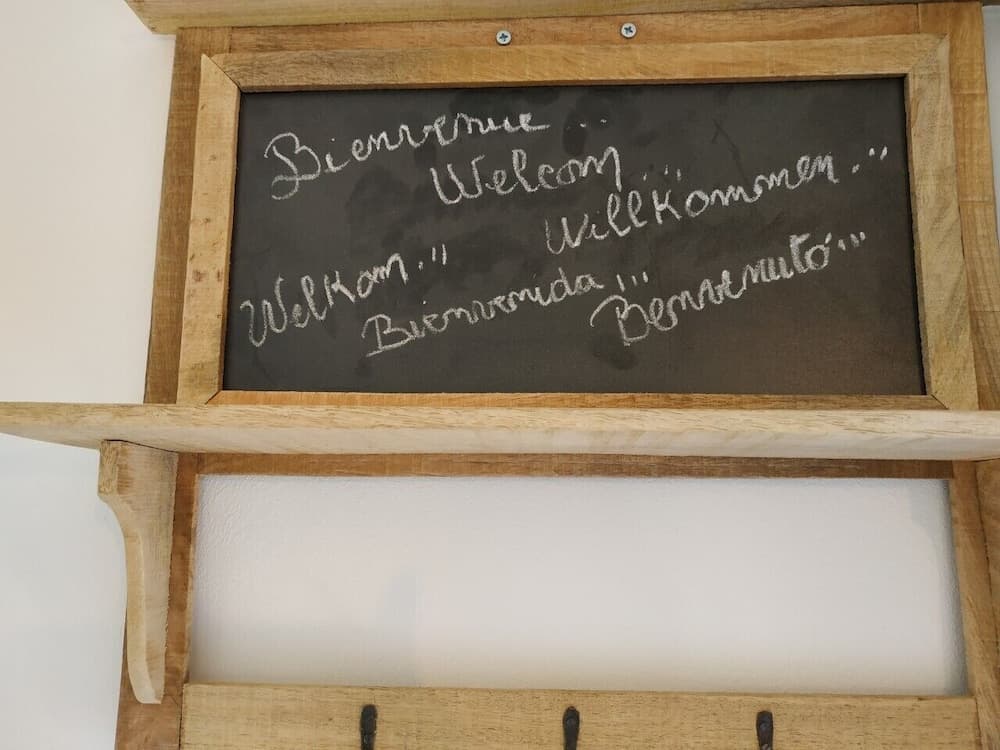 Bienvenue ...
Welcom ...
Willkommen ...
Welkom ...
Bienvenida ...
Benvenutó ...